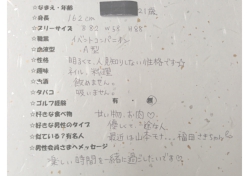 ☆なまえ・年齢 21歳
☆身長 162cm
☆スリーサイズ B 83 W 58 H 88
☆職業 イベントコンパニオン
☆血液型 A型
☆性格 明るくて、人見知りしない性格です☆
☆趣味 料理
☆お酒 飲めません。
☆タバコ 吸いません。
☆ゴルフ経験 有 無
☆好きな食べ物 甘い物、お肉♡
☆好きな男性のタイプ 優しくて、
☆似ている？有名人 最近は山本モナ
☆男性会員さまへメッセージ
楽しい時間を一緒に過ごしたいです